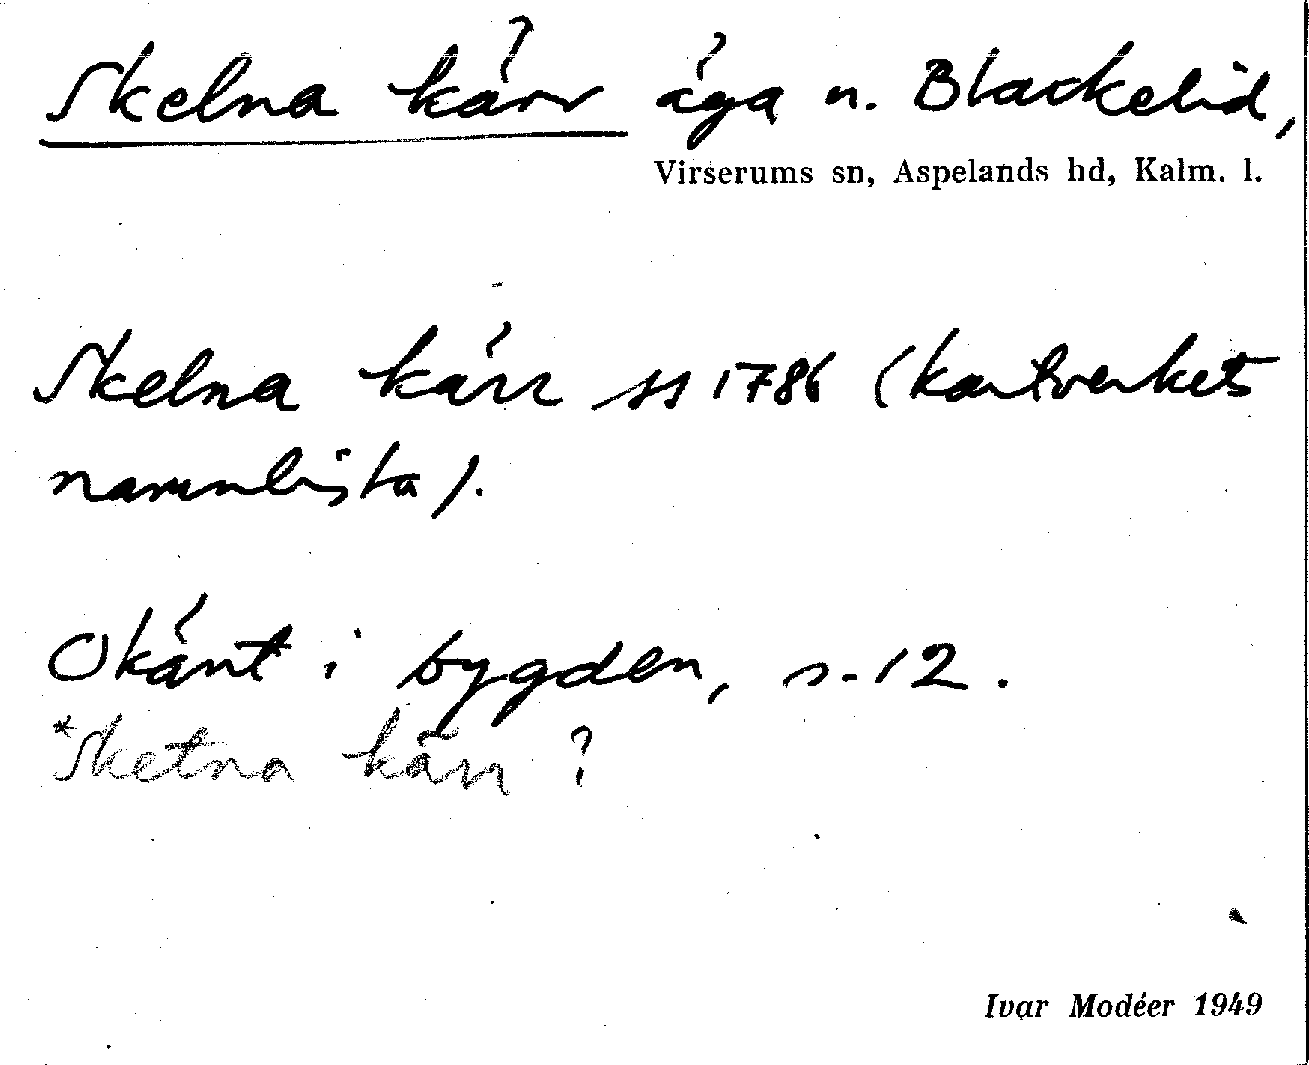 Skelna kärr äga n. Blackelid,
Virserums sn, Aspelands hd, Kalm. l.
Skelna kärr ss 1786 (kartverkets
namnlista).
Okänt i bygden, s. 12.
*Sketna kärr ?
Ivar Modéer 1949